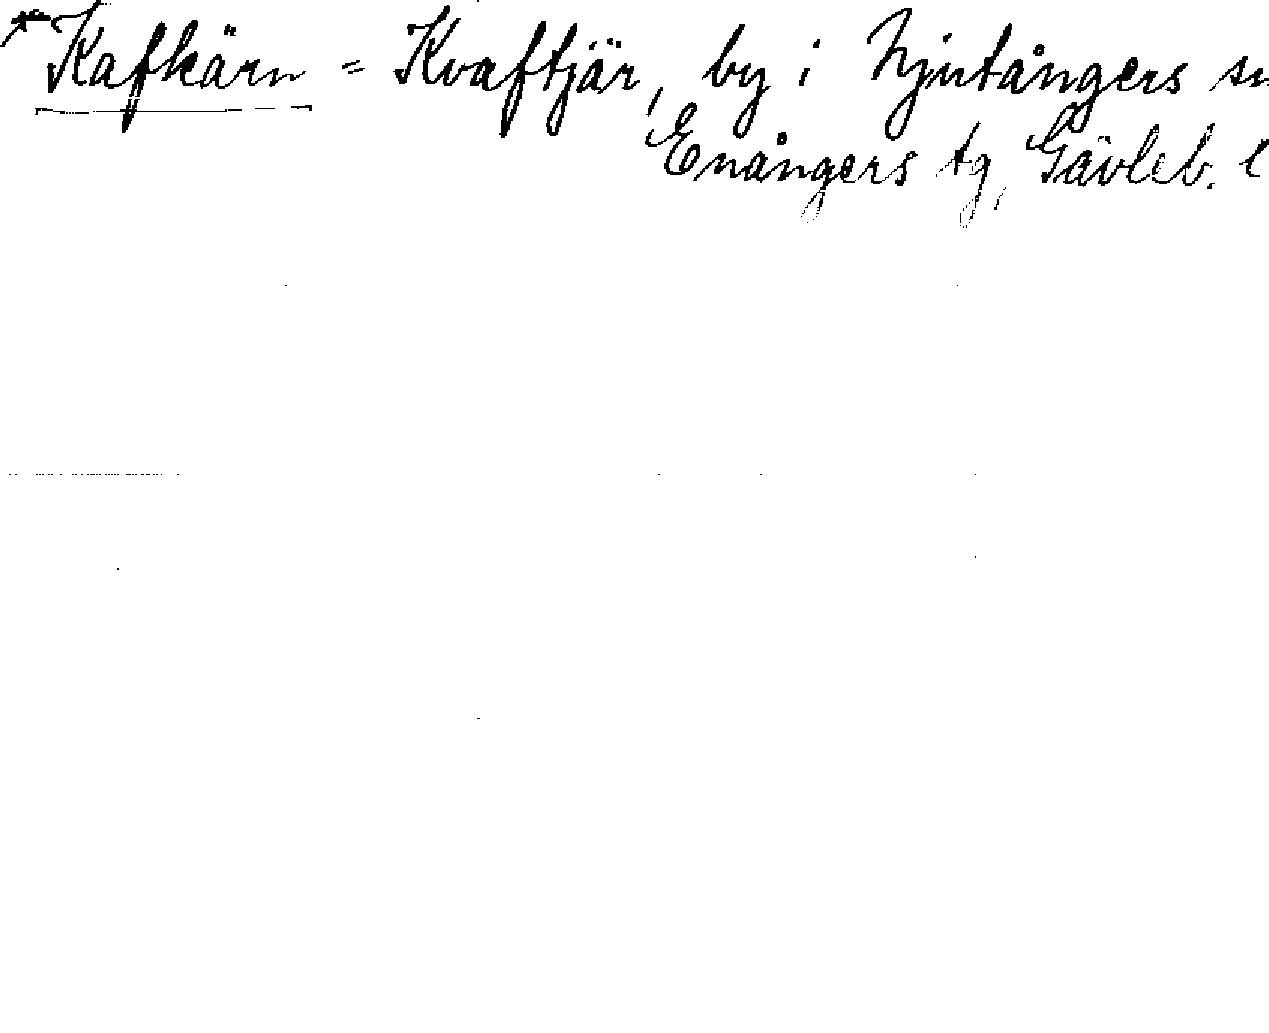 *Kafkärn = Kvaftjär, by i Njutångers sn
Enångers tg, Gävleb. l